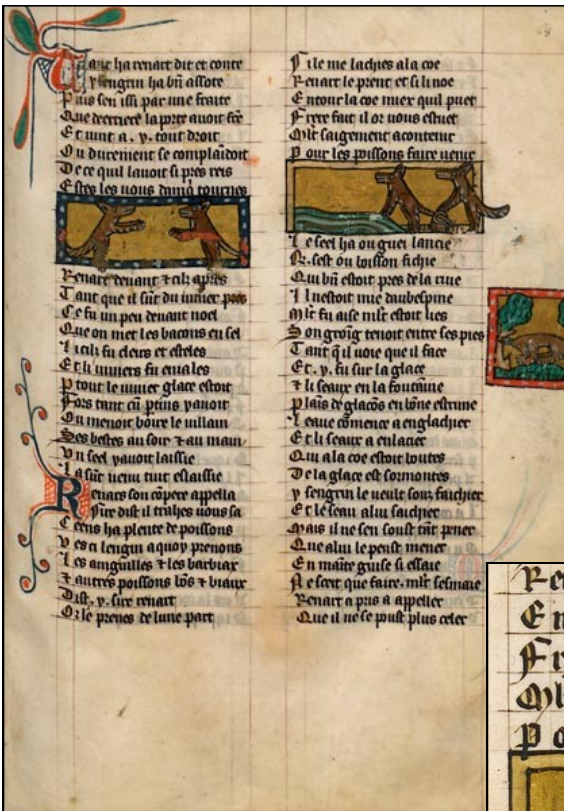 Tant ha renart dit et conte
y sengrin ha bn̄ assote
Puis sen issi par une fraite
Que derriere la porte auoit fte
Et uint a . y. tout droit
Ou durement se complaidoit
De ce quil lauoit si pres reis
Estes les uous dām̄ tournes
Renart deuant ⁊ cil apres
Tant que il sūt du uiuier pres
Ce fu un peu deuant noel
Que on met les bacons en sel
Li cilz fu clers et esteles
Et li uiuiers fu emales
P tout le uiuier glace estoit
Fors tant cū ptuis y auoit
Ou menoit boire le uillain
Ses bestes au soir ⁊ au main
Vn seel y auoit laissie
La sūt uenu tuit eslaissie
Renars son cōpere appella
Sire dist il traihes uous sa
Ceens ha plente de poissons
Ves ci lengin a quoy prenons
Les anguilles ⁊ les barbiax
⁊ autres poissons bōs ⁊ biaux
Dist . y. sire renart
Or le prenes de lune part
Si le me lachies a la coe
Renart le prent et si li noe
Entour la coe miex quil puet
Frere fait il or uous estuet
Mlt saigement a contenir
Pour les poissons faire uenir
Le seel ha ou guei lancie
R. sest ou buisson fichie
Qui bn̄ estoit pres de la riue
Il nestoit mie daubespine
Mlt fu aise mlt estoit lies
Son groīg tenoit entre ses pies
Tant q̄ il uoie que il face
Et . y. fu sur la glace
⁊ li seaux en la fontainne
Plaīs de glacōs en bōne estrune
Leaue cōmence a engladier
Et li seaux a enlacier
Qui a la coe estoit noutes
De la glace est sormontes
y sengrin le ueult souz saichier
Et le seau a lui saichier
Mais il ne sen soust tāt pener
Que a lui le peust mener
En maīte guise si essaie
Ne sceit que faire . mlt sesmaie
Renart a pris a appeller
Que il ne se poust plus celer
Re
En
Fr
Ml
Po